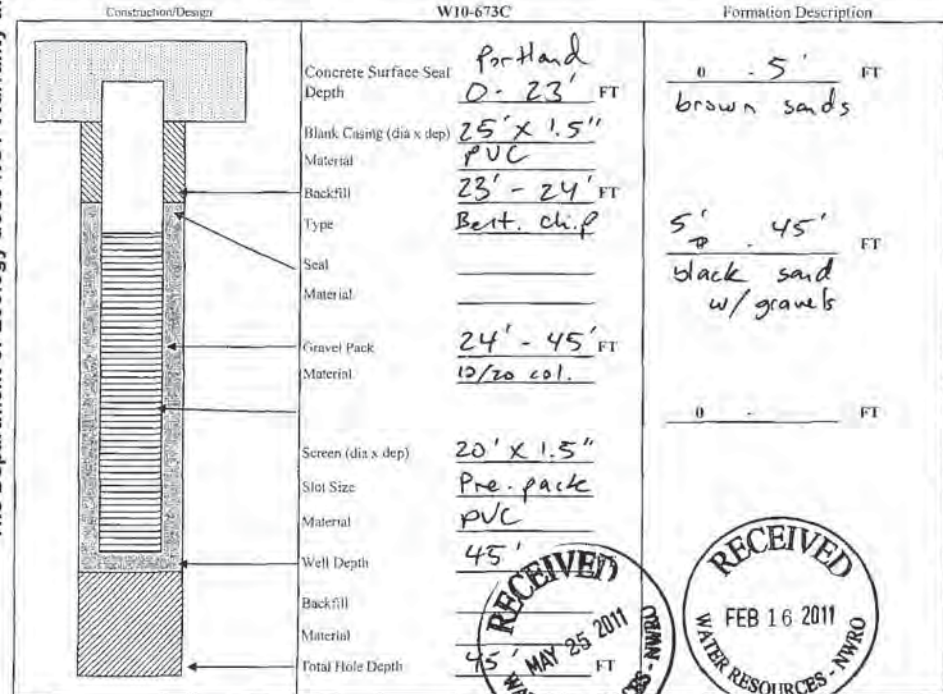 Construction/Design
W10-673C
Formation Description
Concrete Surface Seal Portland
Depth 0 - 23' FT
Blank Casing (dia x dep) 25' x 1.5"
Material PVC
Backfill 23' - 24' FT
Type Bent. chip
Seal
Material
Gravel Pack 24' - 45' FT
Material 10/20 col.
Screen (dia x dep) 20' x 1.5"
Slot Size Pre-pack
Material PVC
Well Depth 45'
Backfill
Material
Total Hole Depth 45' FT
0 - 5' FT
brown sands
5' - 45' FT
black sand
w/ gravels
0 - FT
RECEIVED
MAY 25 2011
RECEIVED
FEB 16 2011
WATER RESOURCES - NWRO